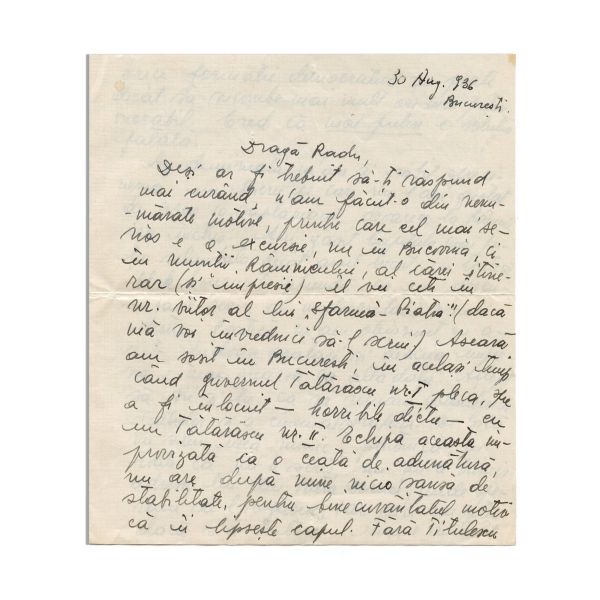 30 Aug. 936
București.
Dragă Radu,
Deși ar fi trebuit să-ți răspund
mai curând, n'am făcut-o din nenu-
-mărate motive, printre care cel mai se-
rios e o excursie, nu în Bucovina, ci
în munții Râmnicului, al cărei itine-
rar (și impresii) îl vei citi în
nr. viitor al lui „Sfarmă-Piatră" (dacă
mă voi învrednici să-l scriu) Aseară
am sosit în București, în același timp
când guvernul Tătărăscu nr. I pleca, spre
a fi înlocuit – horribile dictu – cu
un Tătărăscu nr. II. Echipa aceasta im-
provizată ca o ceată de adunătură,
nu are după mine nicio șansă de
stabilitate, pentru binecuvântatul motiv
că îi lipsește capul. Fără Titulescu